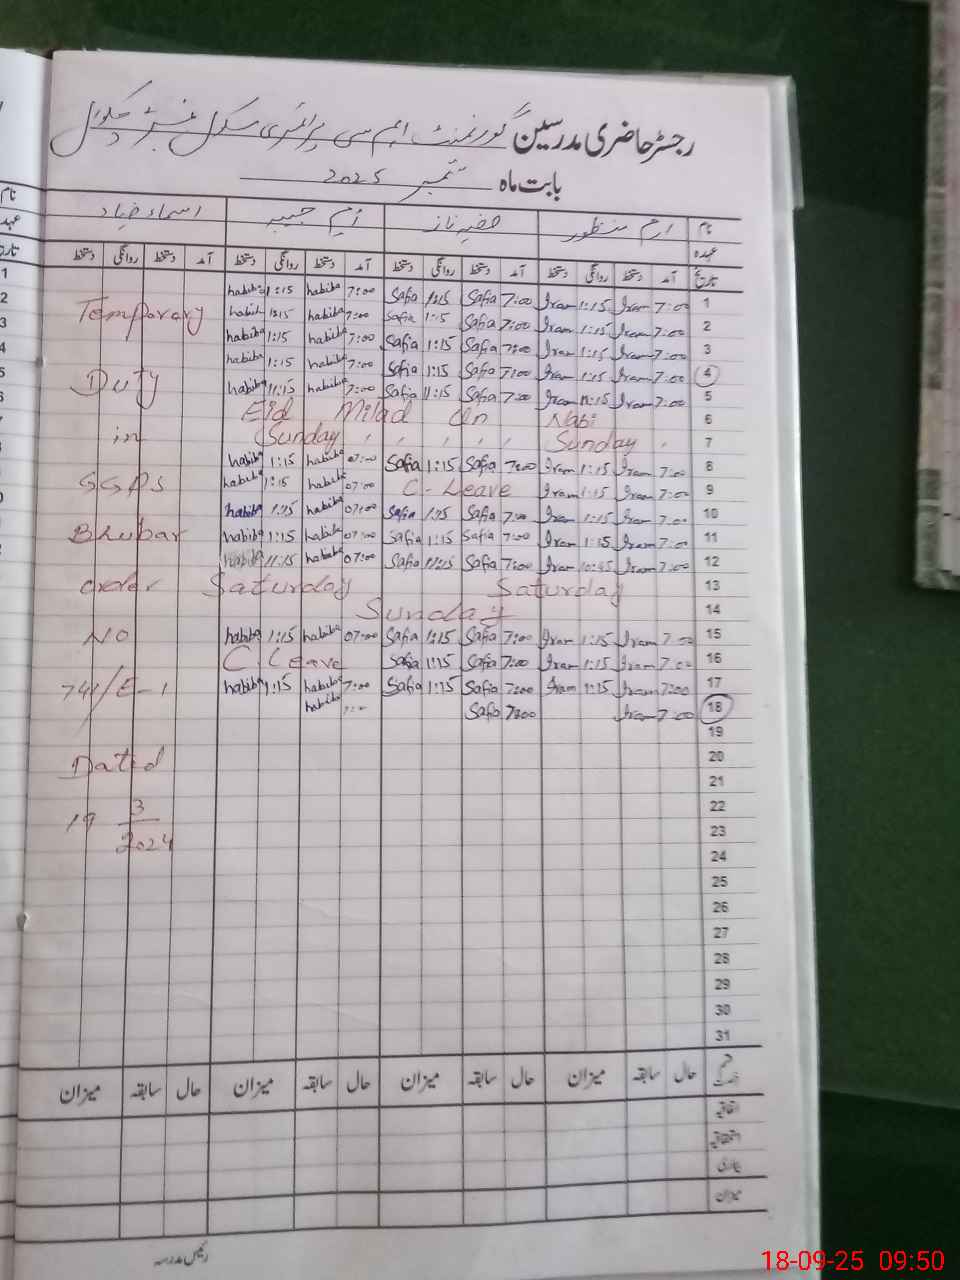 رجسٹر حاضری مدرسین گورنمنٹ ایم سی پرائمری سکول نمبر 5 چکوال
بابت ماہ ستمبر 2025
نام ارم منظور صفیہ ناز ام حبیبہ اسماء
عہدہ
تاریخ آمد دستخط روانگی دستخط آمد دستخط روانگی دستخط آمد دستخط روانگی دستخط آمد دستخط روانگی دستخط
habiba 1:15 habiba 7:00 Safia 1:15 Safia 7:00 Iram 1:15 Iram 7:00 1
Temporary habib 1:15 habiba 7:00 Safia 1:15 Safia 7:00 Iram 1:15 Iram 7:00 2
habiba 1:15 habiba 7:00 Safia 1:15 Safia 7:00 Iram 1:15 Iram 7:00 3
habiba 1:15 habiba 7:00 Safia 1:15 Safia 7:00 Iram 1:15 Iram 7:00 4
Duty habiba 11:15 habiba 7:00 Safia 11:15 Safia 7:00 Iram 11:15 Iram 7:00 5
Eid Milad Un Nabi 6
in Sunday , , , , , Sunday , 7
habiba 1:15 habiba 07:00 Safia 1:15 Safia 7:00 Iram 1:15 Iram 7:00 8
GGPS habiba 1:15 habiba 07:00 C-Leave Iram 1:15 Iram 7:00 9
habiba 1:15 habiba 07:00 Safia 1:15 Safia 7:00 Iram 1:15 Iram 7:00 10
Bhubar habiba 1:15 habiba 07:00 Safia 1:15 Safia 7:00 Iram 1:15 Iram 7:00 11
habiba 11:15 habiba 07:00 Safia 11:15 Safia 7:00 Iram 10:45 Iram 7:00 12
order Saturday Saturday 13
Sunday 14
NO habiba 1:15 habiba 07:00 Safia 1:15 Safia 7:00 Iram 1:15 Iram 7:00 15
C Leave Safia 1:15 Safia 7:00 Iram 1:15 Iram 7:00 16
741/E-1 habiba 1:15 habiba 7:00 Safia 1:15 Safia 7:00 Iram 1:15 Iram 7:00 17
habiba Safia 7:00 Iram 7:00 18
19
Dated 20
21
3 22
19 23
2024 24
25
26
27
28
29
30
31
حال سابقہ میزان حال سابقہ میزان حال سابقہ میزان حال سابقہ میزان
اتفاقیہ
استحقاقیہ
بیماری
میزان
رئیس مدرسہ
18-09-25 09:50